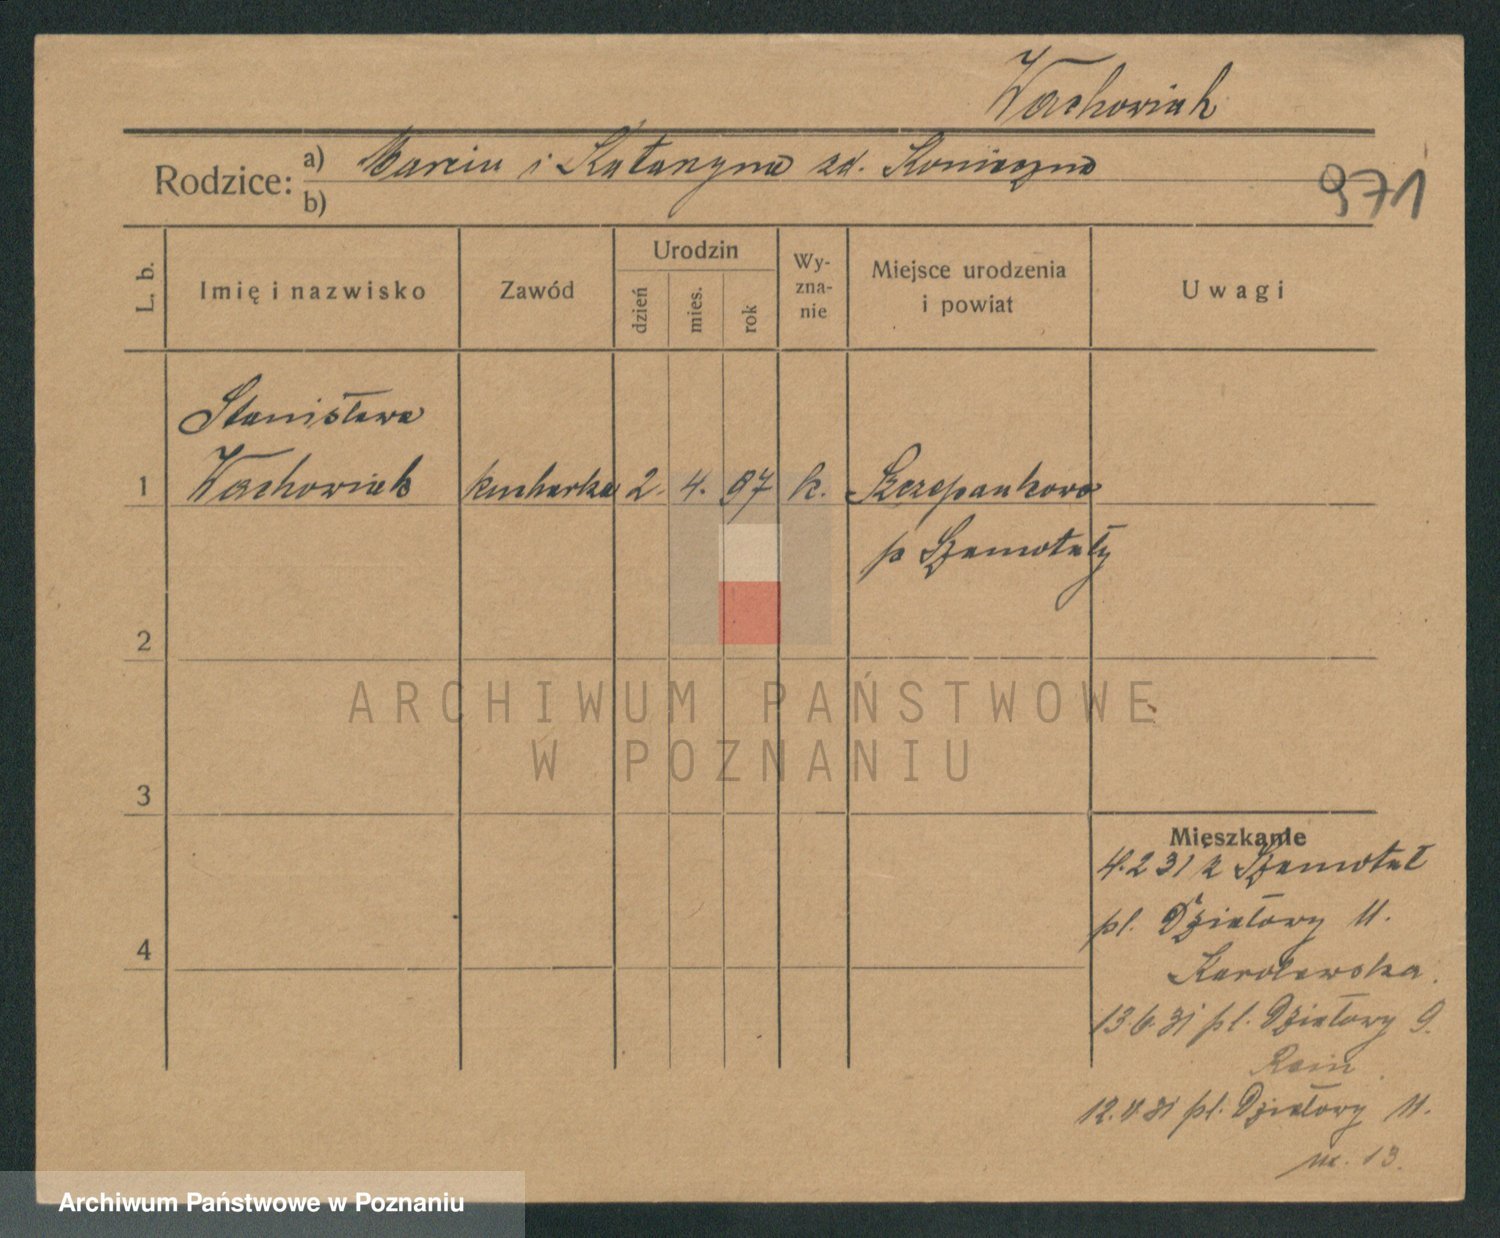 Wachowiak
Rodzice: a) Marcin i Katarzyna zd. Konieczna
b)
971
L. b.
Imię i nazwisko
Zawód
Urodzin
dzień
mies.
rok
Wy-
zna-
nie
Miejsce urodzenia
i powiat
Uwagi
Stanisława
1 Wachowiak kucharka 2. 4. 97 k. Szczepankowo
p Szamotuły
2
3
4
ARCHIWUM PAŃSTWOWE
W POZNANIU
Mieszkanie
4.2 31 z Szamotuł
pl. Działowy 11.
Karolewska.
13.6 31 pl. Działowy 9.
12. 31 pl. Działowy 11.
m. 13.
Archiwum Państwowe w Poznaniu